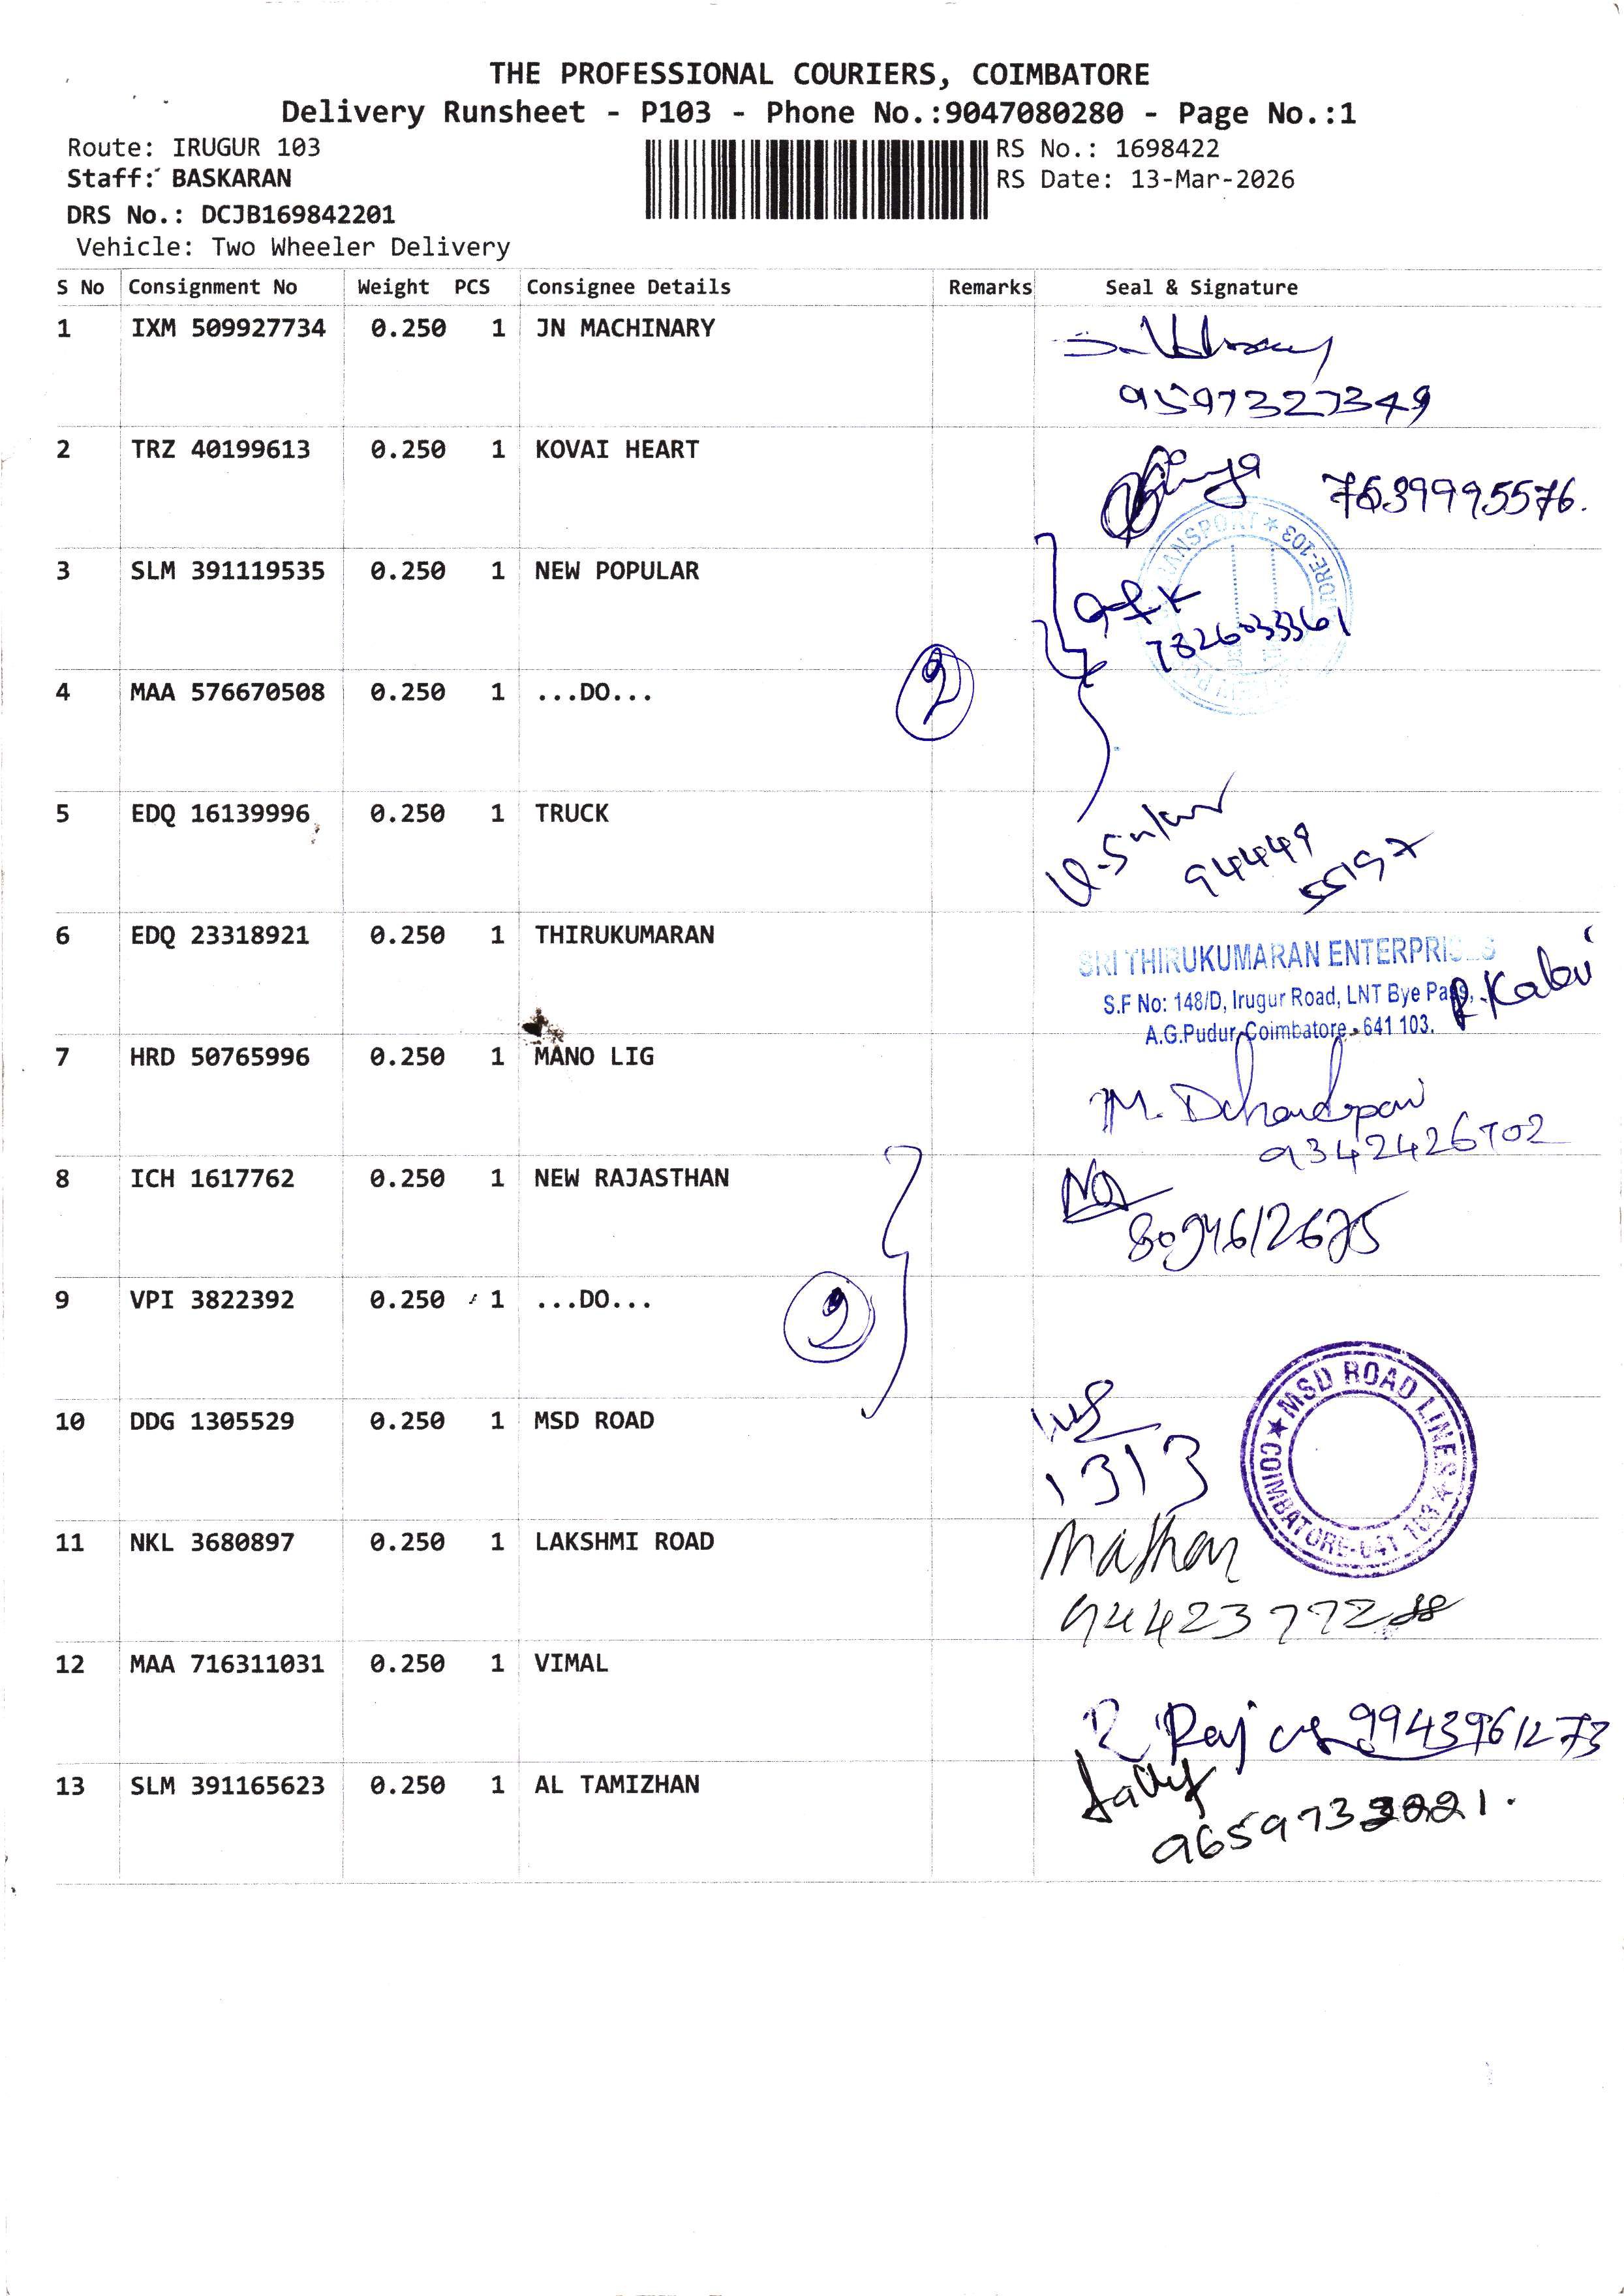 THE PROFESSIONAL COURIERS, COIMBATORE
Delivery Runsheet - P103 - Phone No.:9047080280 - Page No.:1
Route: IRUGUR 103
RS No.: 1698422
Staff: BASKARAN
RS Date: 13-Mar-2026
DRS No.: DCJB169842201
Vehicle: Two Wheeler Delivery
S No Consignment No Weight PCS Consignee Details Remarks Seal & Signature
1 IXM 509927734 0.250 1 JN MACHINARY
9597327349
2 TRZ 40199613 0.250 1 KOVAI HEART
7639995576.
3 SLM 391119535 0.250 1 NEW POPULAR
7826033361
4 MAA 576670508 0.250 1 ...DO...
2
5 EDQ 16139996 0.250 1 TRUCK
94449
55197
6 EDQ 23318921 0.250 1 THIRUKUMARAN
SRI THIRUKUMARAN ENTERPRISES
S.F No: 148/D, Irugur Road, LNT Bye Pass,
A.G.Pudur, Coimbatore - 641 103.
7 HRD 50765996 0.250 1 MANO LIG
9342426702
8 ICH 1617762 0.250 1 NEW RAJASTHAN
9 VPI 3822392 0.250 1 ...DO...
2
10 DDG 1305529 0.250 1 MSD ROAD
1313
★ MSD ROAD LINES ★ COIMBATORE-641 103
11 NKL 3680897 0.250 1 LAKSHMI ROAD
Mathan
12 MAA 716311031 0.250 1 VIMAL
R Raj 9943961273
13 SLM 391165623 0.250 1 AL TAMIZHAN